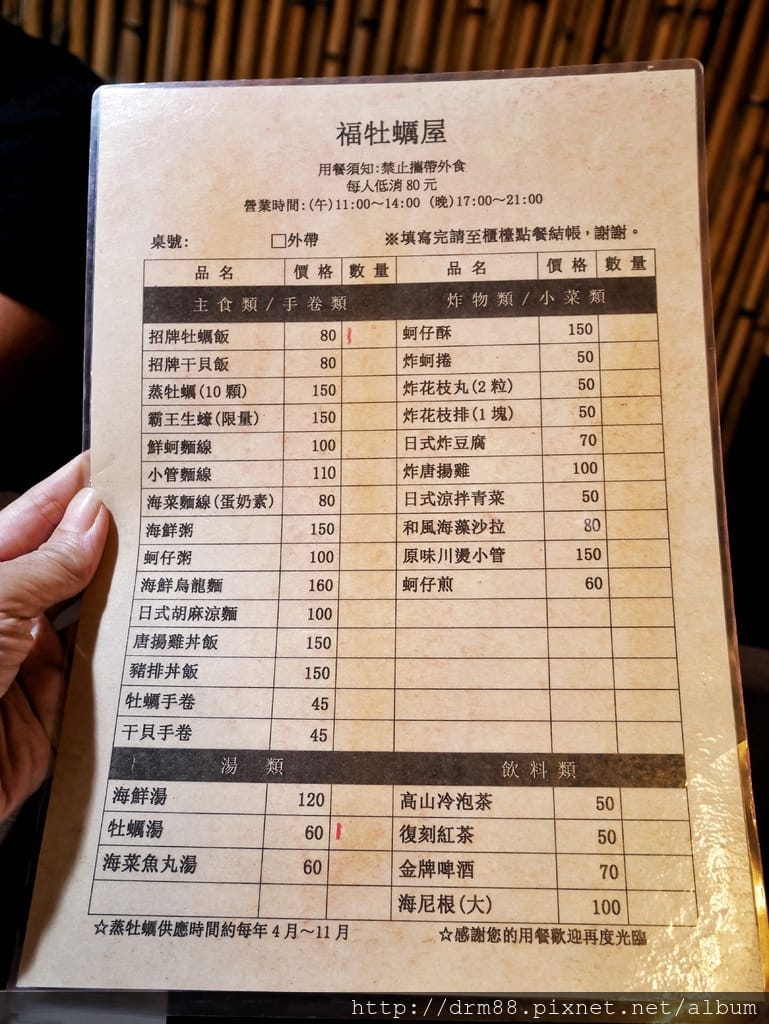 福牡蠣屋
用餐須知:禁止攜帶外食
每人低消80元
營業時間:(午)11:00～14:00 (晚)17:00～21:00
桌號: □外帶 ※填寫完請至櫃檯點餐結帳,謝謝。
品名 價格 數量 品名 價格 數量
主食類/手卷類 炸物類/小菜類
招牌牡蠣飯 80 蚵仔酥 150
招牌干貝飯 80 炸蚵捲 50
蒸牡蠣(10顆) 150 炸花枝丸(2粒) 50
霸王生蠔(限量) 150 炸花枝排(1塊) 50
鮮蚵麵線 100 日式炸豆腐 70
小管麵線 110 炸唐揚雞 100
海菜麵線(蛋奶素) 80 日式涼拌青菜 50
海鮮粥 150 和風海藻沙拉 80
蚵仔粥 100 原味川燙小管 150
海鮮烏龍麵 160 蚵仔煎 60
日式胡麻涼麵 100
唐揚雞丼飯 150
豬排丼飯 150
牡蠣手卷 45
干貝手卷 45
湯類 飲料類
海鮮湯 120 高山冷泡茶 50
牡蠣湯 60 復刻紅茶 50
海菜魚丸湯 60 金牌啤酒 70
海尼根(大) 100
☆蒸牡蠣供應時間約每年4月～11月 ☆感謝您的用餐歡迎再度光臨
http://drm88.pixnet.net/album